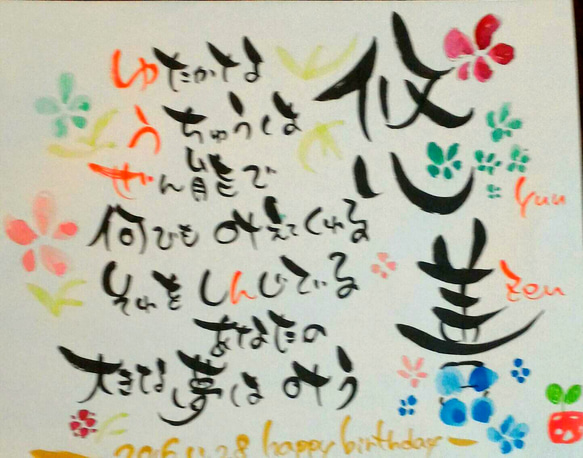 悠善
yuu
zen
ゆたかな
うちゅうは
ぜん能で
何でも叶えてくれる
それをしんじている
あなたの
大きな夢は叶う
2016.11.28 happy birthday